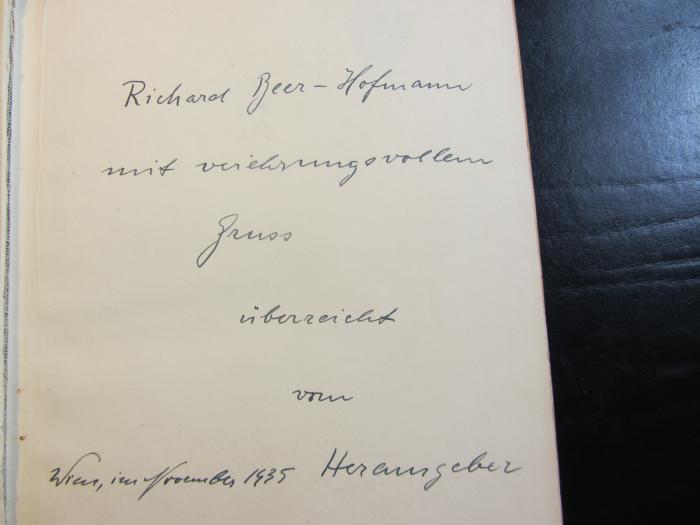 Richard Beer-Hofmann
mit verehrungsvollem
Gruss
überreicht
vom
Wien, im November 1935 Herausgeber